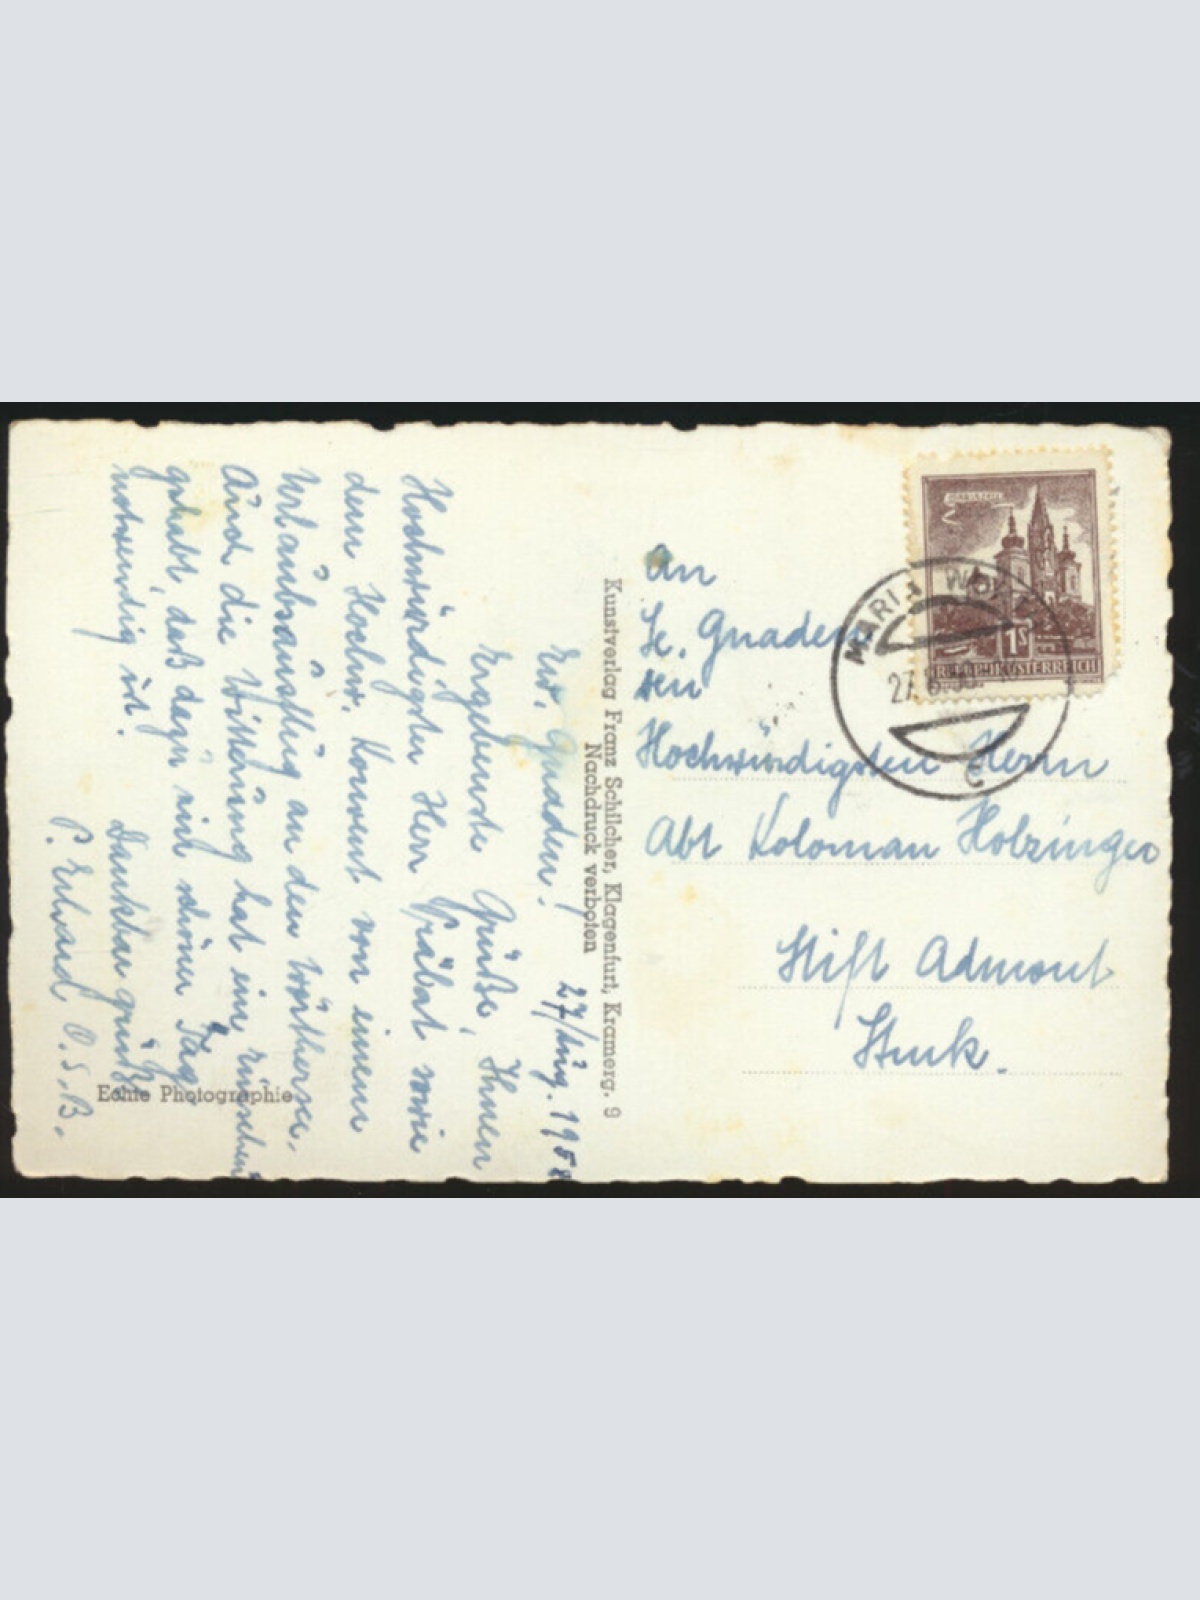 27/Aug. 1958
Ew. Gnaden!
Ergebenste Grüße, Ihnen
Hochwürdigster Herr Prälat wie
dem Hochw. Konvent von einem
Urlaubsausflug an den Wörthersee.
Auch die Witterung hat ein
gehabt, daß dazu ein schöner Tag
notwendig ist.
Dankbar grüßt
P. O.S.B.
Echte Photographie
Kunstverlag Franz Schilcher, Klagenfurt, Kramerg. 9
Nachdruck verboten
MARIENZELL
1S
REPUBLIK ÖSTERREICH
MARIA WÖRTH
27.8.58
c
An
Se. Gnaden
den
Hochwürdigsten Herrn
Abt Koloman Holzinger
Stift Admont
Stmk.